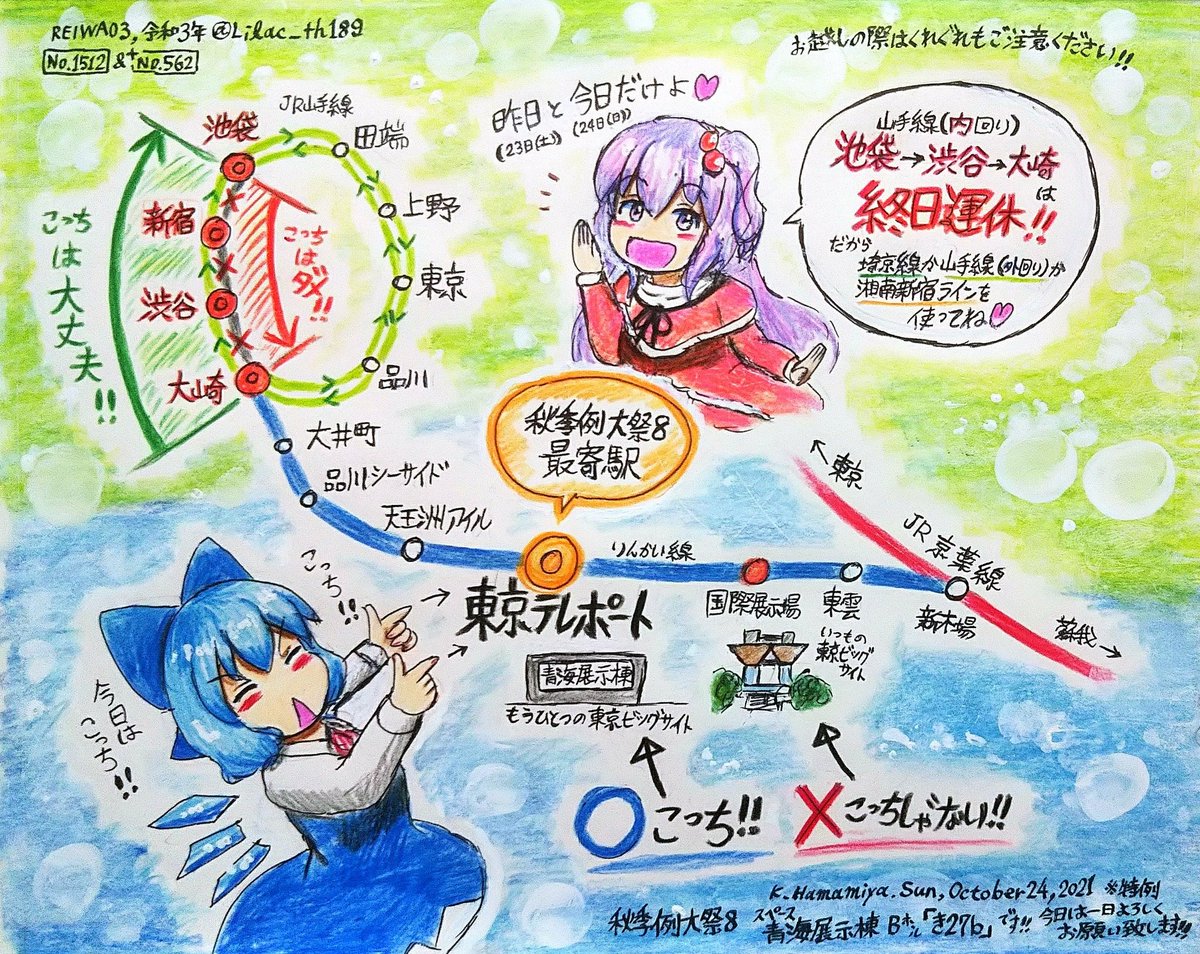 REIWA03, 令和3年 @Lilac_th189
No.1512 & No.562
お越しの際はくれぐれもご注意ください!!
JR山手線
池袋
田端
新宿
上野
渋谷
東京
大崎
品川
こっちは大丈夫!!
こっちはダメ!!
昨日と今日だけよ
(23日(土)) (24日(日))
山手線(内回り)
池袋→渋谷→大崎
は
終日運休!!
だから
埼京線か山手線(外回り)か
湘南新宿ラインを
使ってね
大井町
品川シーサイド
天王洲アイル
秋季例大祭8
最寄駅
りんかい線
東京テレポート
国際展示場
東雲
新木場
←東京
JR京葉線
蘇我→
こっち!!
今日は
こっち!!
青海展示棟
もうひとつの東京ビッグサイト
いつもの
東京ビッグ
サイト
こっち!!
こっちじゃない!!
K.Hamamiya.Sun,October24,2021 ※特例
秋季例大祭8 スペース 青海展示棟 Bホール「き27b」です!! 今日は一日よろしく
お願い致します!!